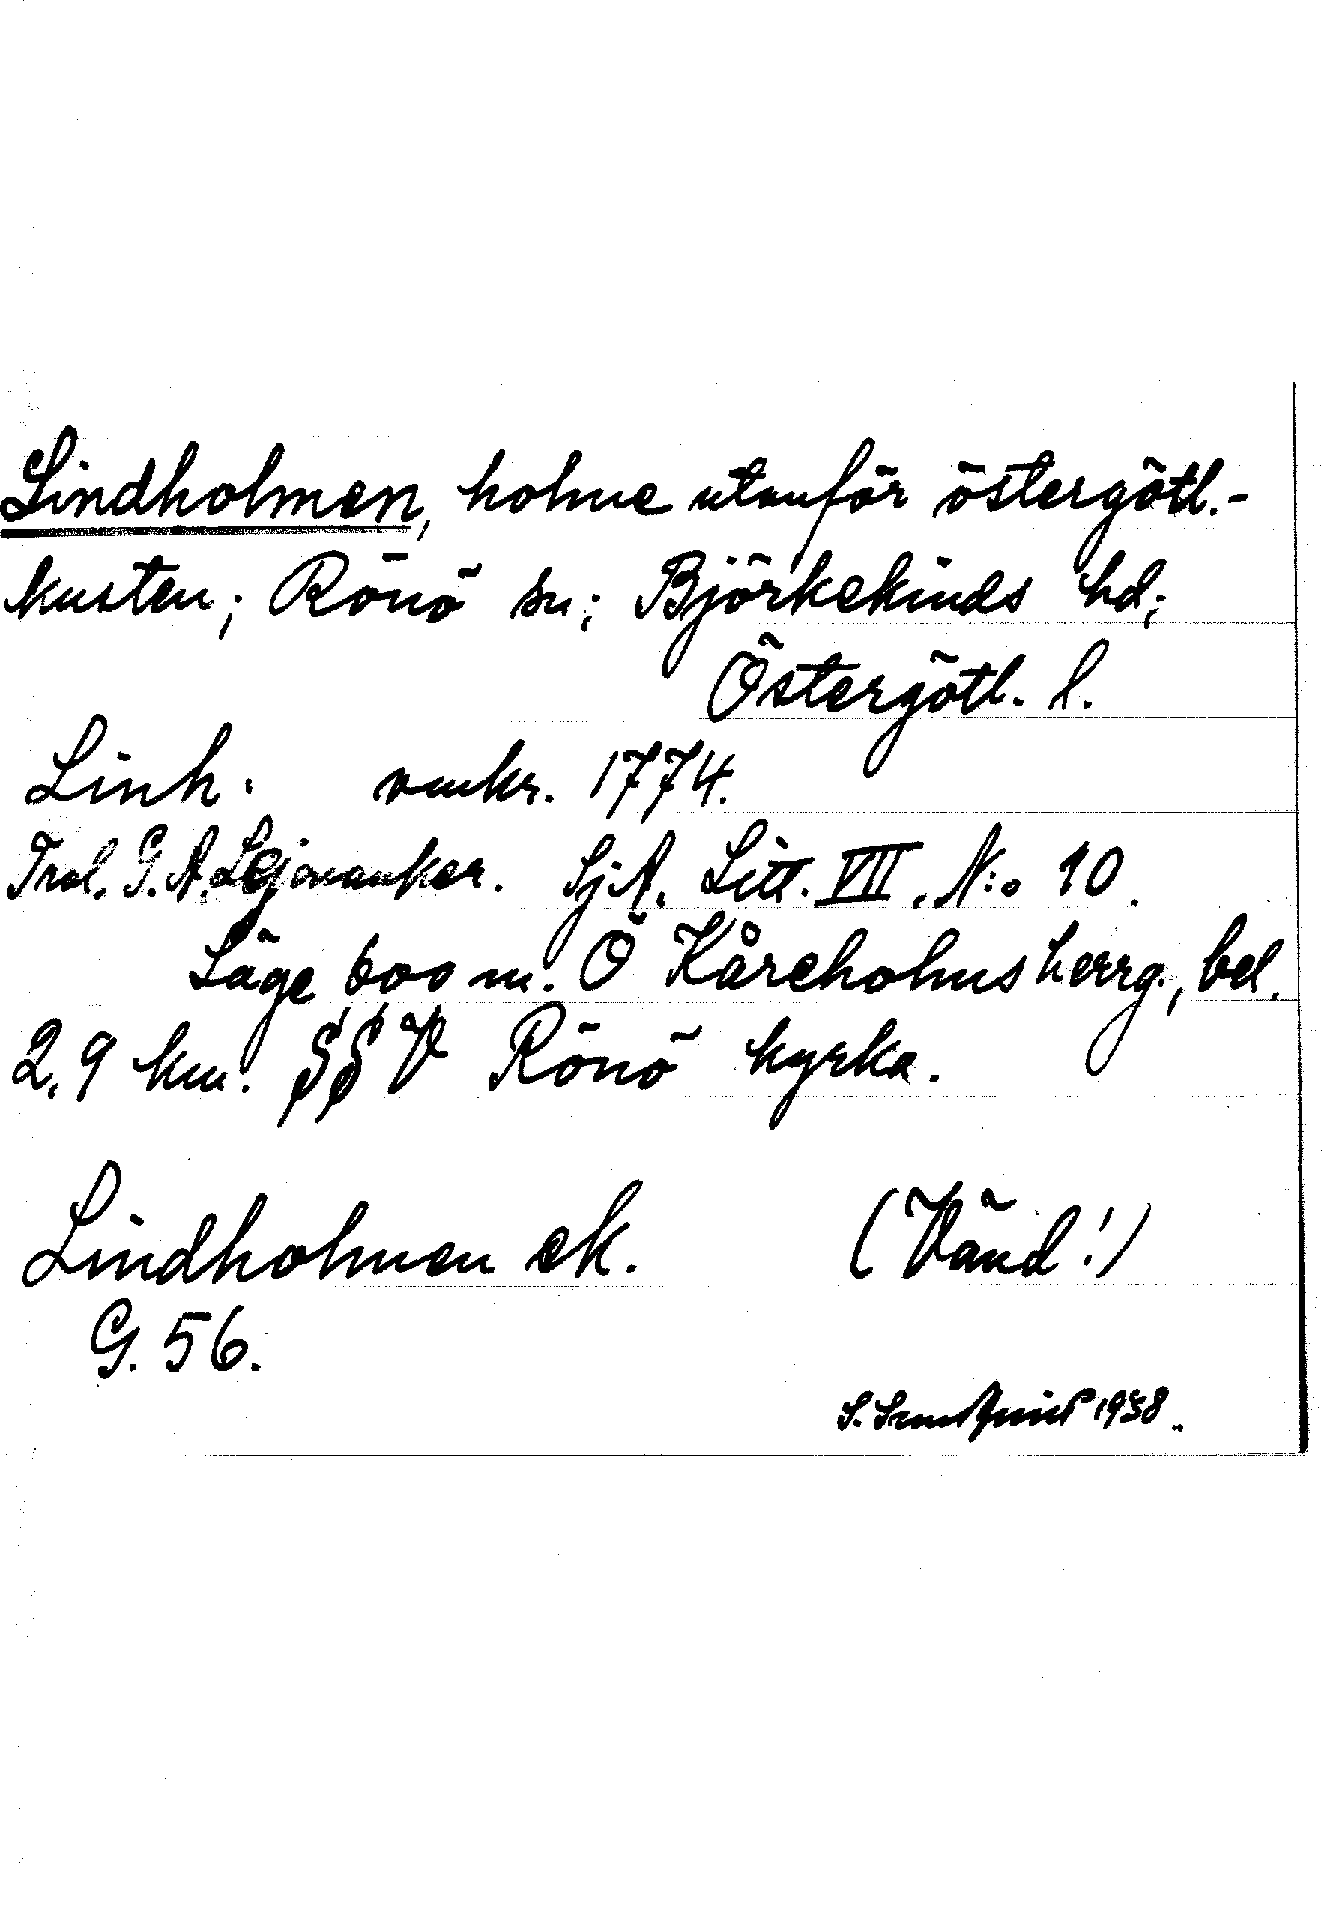 Lindholmen, holme utanför östergötl.-
kusten; Rönö sn; Björkekinds hd;
Östergötl. l.
Linh. omkr. 1774.
Trol. G. A. Lejonanker. SjA. Litt. VII. N:o 10.
Läge 600 m. Ö Kåreholms herrg., bel.
2,9 km. SSV Rönö kyrka.
Lindholmen ek. (Vänd!)
G. 56.
S. 1938.